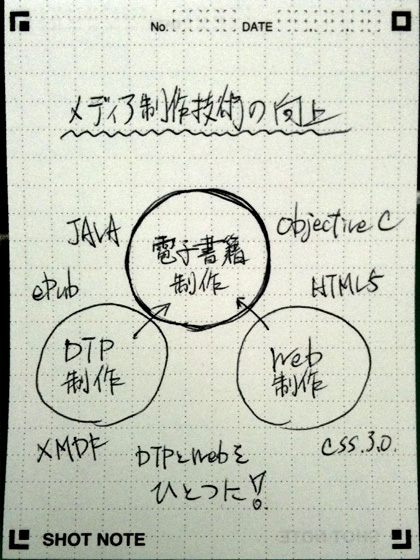 No. DATE
メディア制作技術の向上
JAVA
Objective C
電子書籍
制作
ePub
HTML5
DTP
制作
Web
制作
XMDF
CSS.3.0.
DTPとWebを
ひとつに!
SHOT NOTE